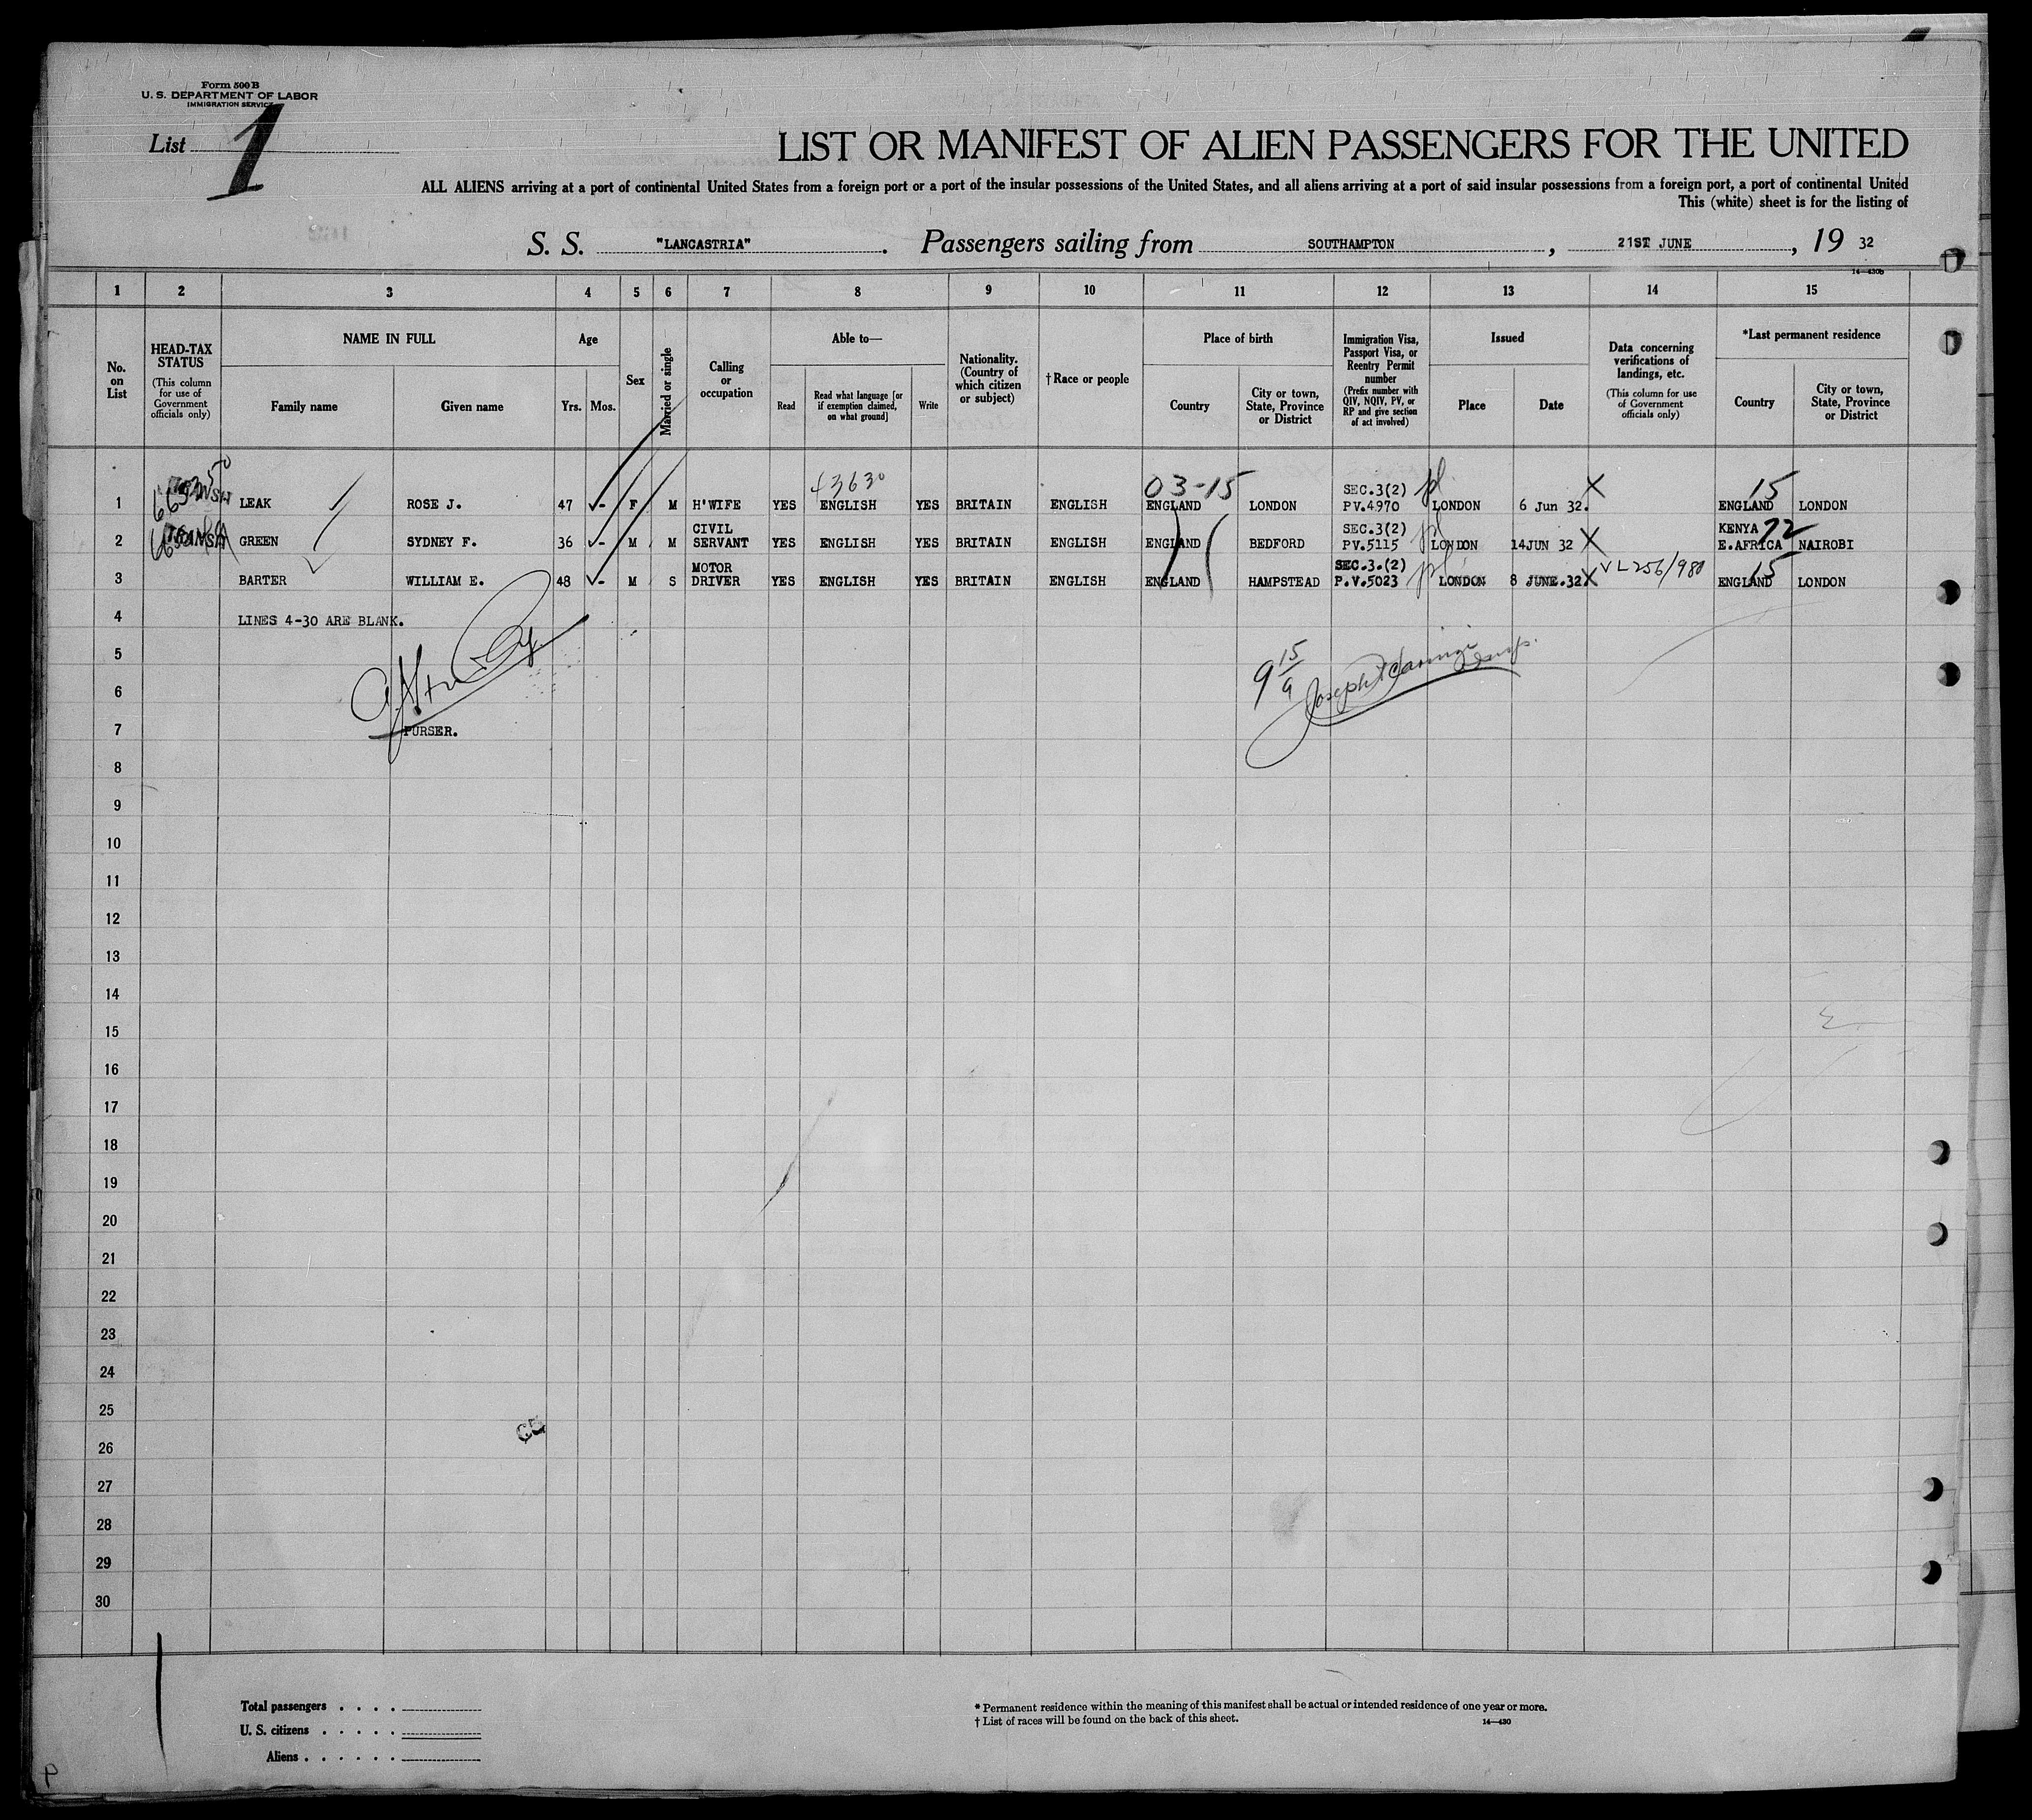 Form 500 B
U. S. DEPARTMENT OF LABOR
IMMIGRATION SERVICE
List 1
LIST OR MANIFEST OF ALIEN PASSENGERS FOR THE UNITED
ALL ALIENS arriving at a port of continental United States from a foreign port or a port of the insular possessions of the United States, and all aliens arriving at a port of said insular possessions from a foreign port, a port of continental United
This (white) sheet is for the listing of
S. S. "LANCASTRIA". Passengers sailing from SOUTHAMPTON, 21ST JUNE, 19 32
14—430b
1 2 3 4 5 6 7 8 9 10 11 12 13 14 15
No. on List
HEAD-TAX STATUS
(This column for use of Government officials only)
NAME IN FULL
Family name Given name
Age
Yrs. Mos.
Sex
Married or single
Calling or occupation
Able to—
Read Read what language [or if exemption claimed, on what ground] Write
Nationality. (Country of which citizen or subject)
† Race or people
Place of birth
Country City or town, State, Province or District
Immigration Visa, Passport Visa, or Reentry Permit number
(Prefix number with QIV, NQIV, PV, or RP and give section of act involved)
Issued
Place Date
Data concerning verifications of landings, etc.
(This column for use of Government officials only)
*Last permanent residence
Country City or town, State, Province or District
43630 03-15 SEC.3(2) 15
1 LEAK ROSE J. 47 - F M H'WIFE YES ENGLISH YES BRITAIN ENGLISH ENGLAND LONDON PV.4970 LONDON 6 Jun 32. X ENGLAND LONDON
CIVIL SEC.3(2) KENYA 72
2 GREEN SYDNEY F. 36 - M M SERVANT YES ENGLISH YES BRITAIN ENGLISH ENGLAND BEDFORD PV.5115 LONDON 14JUN 32 X E.AFRICA NAIROBI
MOTOR SEC.3.(2) VL256/980 15
3 BARTER WILLIAM E. 48 - M S DRIVER YES ENGLISH YES BRITAIN ENGLISH ENGLAND HAMPSTEAD P.V.5023 LONDON 8 JUNE.32. X ENGLAND LONDON
4 LINES 4-30 ARE BLANK.
5
6
7 PURSER.
8
9
10
11
12
13
14
15
16
17
18
19
20
21
22
23
24
25
26
27
28
29
30
Total passengers . . . .
U. S. citizens . . . . .
Aliens . . . . . .
* Permanent residence within the meaning of this manifest shall be actual or intended residence of one year or more.
† List of races will be found on the back of this sheet.
14—430
P